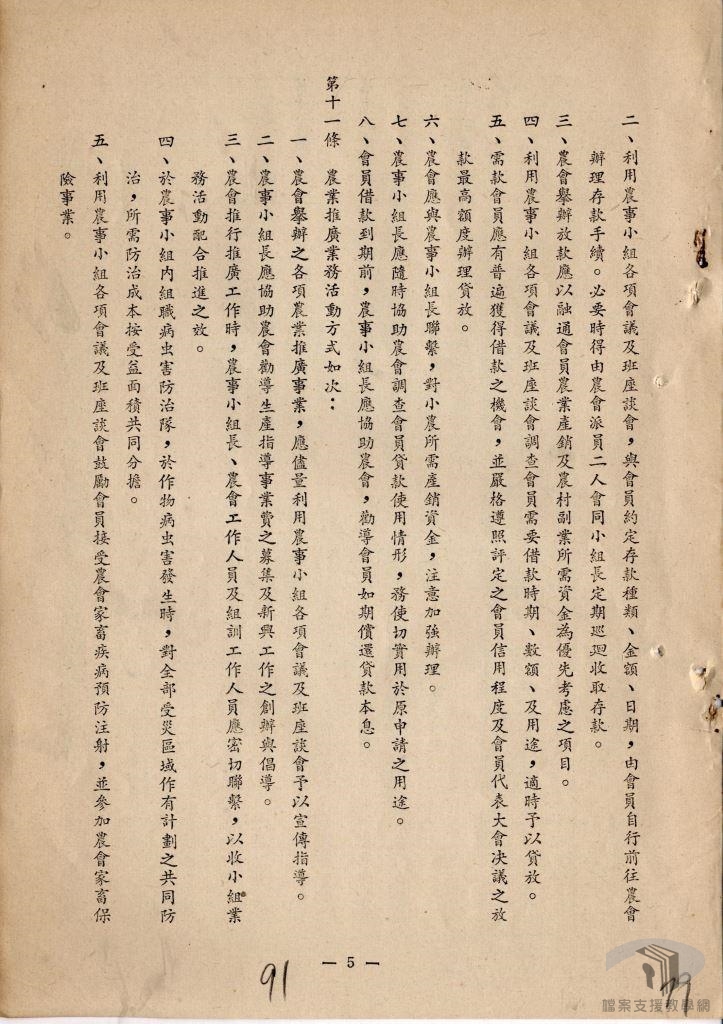 二、利用農事小組各項會議及班座談會，與會員約定存款種類、金額、日期，由會員自行前往農會
辦理存款手續。必要時得由農會派員二人會同小組長定期巡迴收取存款。
三、農會舉辦放款應以融通會員農業產銷及農村副業所需資金為優先考慮之項目。
四、利用農事小組各項會議及班座談會調查會員需要借款時期、數額、及用途，適時予以貸放。
五、需款會員應有普遍獲得借款之機會，並嚴格遵照評定之會員信用程度及會員代表大會決議之放
款最高額度辦理貸放。
六、農會應與農事小組長聯繫，對小農所需產銷資金，注意加強辦理。
七、農事小組長應隨時協助農會調查會員貸款使用情形，務使切實用於原申請之用途。
八、會員借款到期前，農事小組長應協助農會，勸導會員如期償還貸款本息。
第十一條　農業推廣業務活動方式如次：
一、農會舉辦之各項農業推廣事業，應儘量利用農事小組各項會議及班座談會予以宣傳指導。
二、農事小組長應協助農會勸導生產指導事業費之募集及新興工作之創辦與倡導。
三、農會推行推廣工作時，農事小組長、農會工作人員及組訓工作人員應密切聯繫，以收小組業
務活動配合推進之放。
四、於農事小組內組職病虫害防治隊，於作物病虫害發生時，對全部受災區域作有計劃之共同防
治，所需防治成本按受益面積共同分擔。
五、利用農事小組各項會議及班座談會鼓勵會員接受農會家畜疾病預防注射，並參加農會家畜保
險事業。
— 5 —
91
79
檔案支援教學網